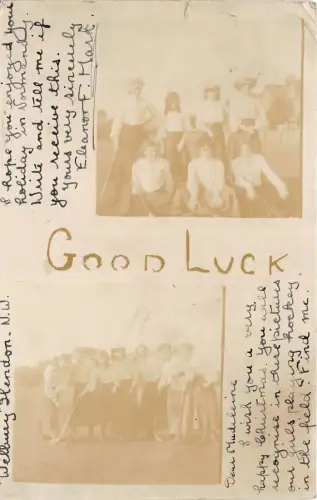 GOOD LUCK
"Wellbury" Hendon. N.W.
Dear Madeleine
I wish you a very
happy Christmas. You will
recognise in these pictures
our girls playing hockey
in the field. Find me.
I hope you enjoyed your
holiday in Normandy.
Write and tell me if
you receive this.
Yours very sincerely
Eleanor F.